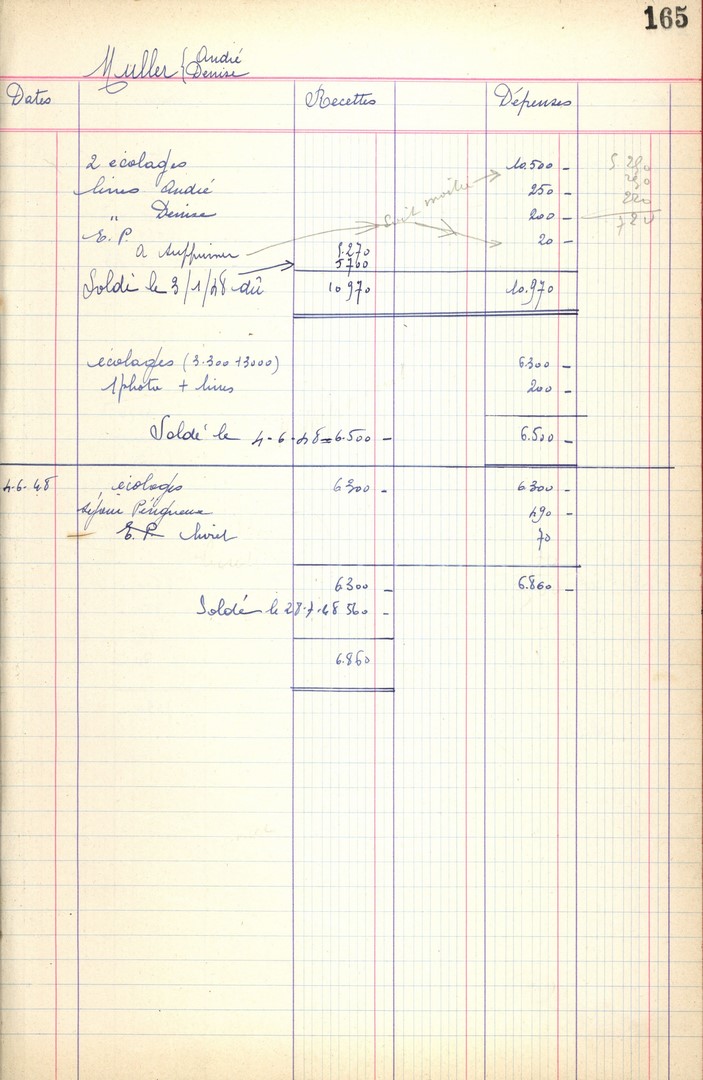 165
Muller { André
Denise
Dates Recettes Dépenses
2 écolages 10.500 -
livres André 250 -
" Denise 200 -
E. P. 20 -
à supprimer 5.270
Soit moitié
5700
Soldé le 3/1/48 dû 10970 10.970
écolages (3.300+3000) 6300 -
1 photo + livres 200 -
Soldé le 4-6-48=6.500 - 6.500 -
4.6.48 écolages 6300 - 6300 -
séjour Périgueux 490 -
E. P. livret 70
6300 - 6.860 -
Soldé le 28.7.48 560 -
6.860